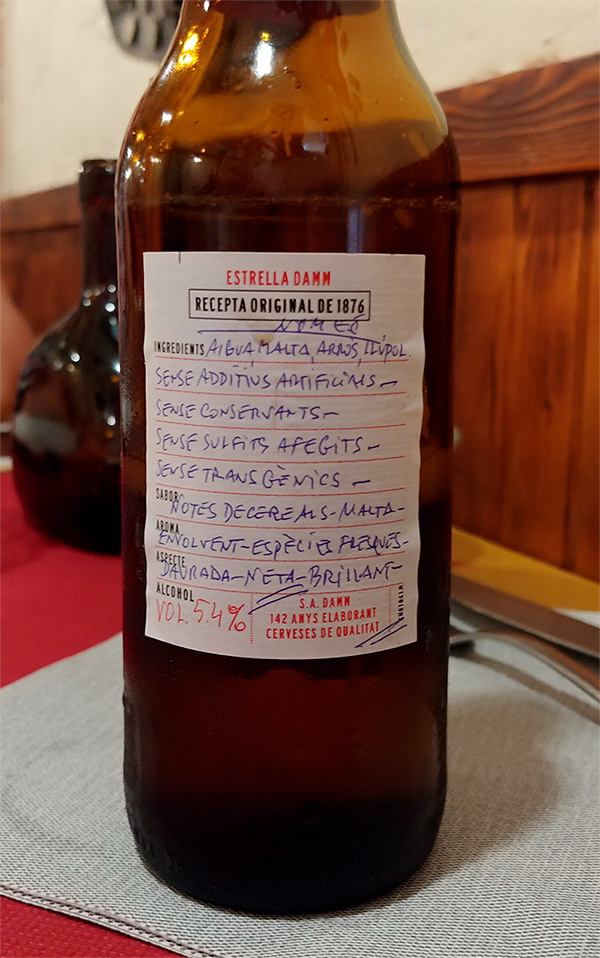 ESTRELLA DAMM
RECEPTA ORIGINAL DE 1876
NOMÉS
INGREDIENTS AIGUA, MALTA, ARRÒS, LLÚPOL.
SENSE ADDITIUS ARTIFICIALS-
SENSE CONSERVANTS-
SENSE SULFITS AFEGITS-
SENSE TRANSGÈNICS-
SABOR NOTES DE CEREALS-MALTA-
AROMA ENVOLVENT-ESPÈCIES FRESQUES-
ASPECTE DAURADA-NETA-BRILLANT-
ALCOHOL
VOL. 5.4%
S.A. DAMM
142 ANYS ELABORANT
CERVESES DE QUALITAT